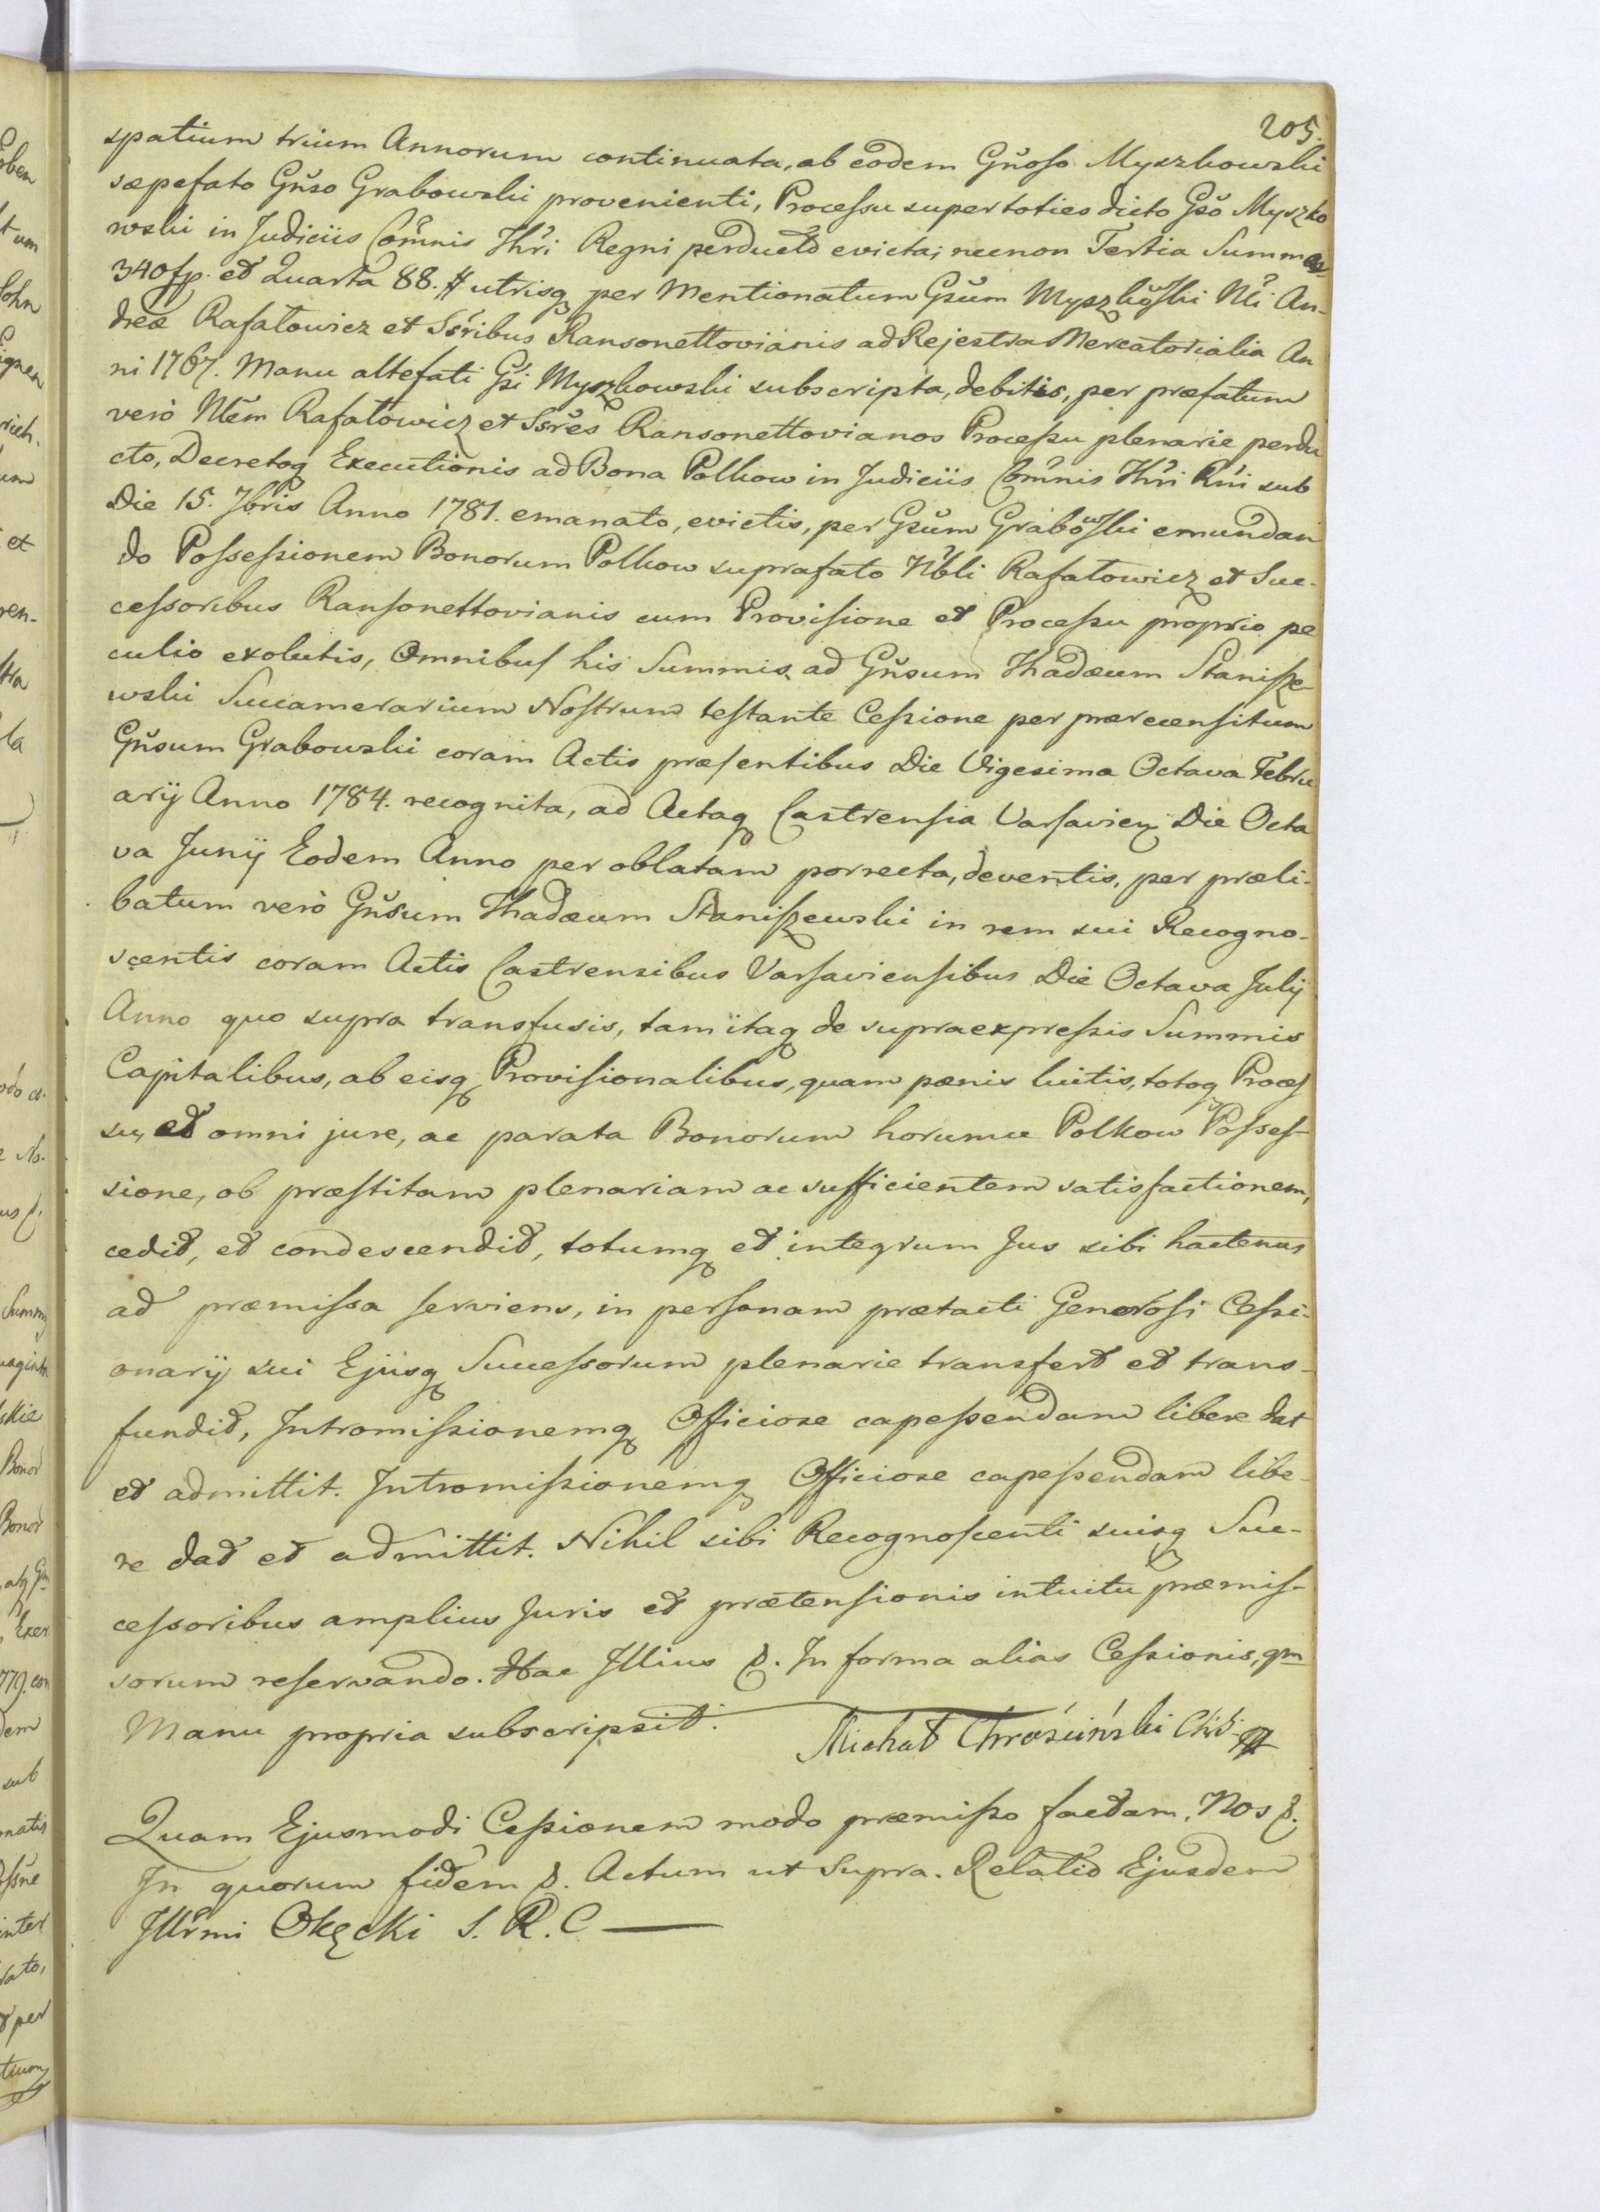 205.
spatium trium Annorum continuata, ab eodem Gnoso Myszkowski
sæpefato Gnso Grabowski provenienti, Processu super toties dicto Gso Myszko
wski in Judiciis Comnis Thri Regni perducto evicta; necnon Tertia Summa
340 fp. et Quarta 88. # utrisq per Mentionatum Gsum Myszkowski Nli An-
dreæ Rafałowicz et Ssribus Ransonettovianis ad Rejestra Mercatorialia An
ni 1767. Manu altefati Gsi Myszkowski subscripta, debitis, per præfatum
verò Nlem Rafałowicz et Ssres Ransonettovianos Processu plenarie perdu
cto, Decretoq Executionis ad Bona Polkow in Judiciis Comnis Thri Rni sub
Die 15. 7bris Anno 1781. emanato, evictis, per Gsum Grabowski emundan
do Possessionem Bonorum Polkow suprafato Nbli Rafałowicz et Suc-
cessoribus Ransonettovianis cum Provisione et Processu proprio pe
culio exolutis, Omnibus his Summis ad Gnsum Thadæum Stanisze-
wski Succamerarium Nostrum testante Cessione per præcensitum
Gnsum Grabowski coram Actis præsentibus Die Vigesima Octava Febru
arij Anno 1784. recognita, ad Actaq Castrensia Varsavien Die Octa
va Junij Eodem Anno per oblatam porrecta, deventis, per præli-
batum verò Gnsum Thadæum Staniszewski in rem sui Recogno-
scentis coram Actis Castrensibus Varsaviensibus Die Octava Julij
Anno quo supra transfusis, tam itaq de supraexpressis Summis
Capitalibus, ab eisq Provisionalibus, quam pœnis luitis, totoq Proces
su, et omni jure, ac parata Bonorum horumce Polkow Posses-
sione, ob præstitam plenariam ac sufficientem satisfactionem,
cedit, et condescendit, totumq et integrum Jus sibi hactenus
ad præmissa serviens, in personam prætacti Generosi Cessi-
onarij sui Ejusq Successorum plenarie transfert et trans-
fundit, Intromissionemq Officiose capessendam libere dat
et admittit. Intromissionemq Officiose capessendam libe-
re dat et admittit. Nihil sibi Recognoscenti suisq Suc-
cessoribus amplius Juris et prætensionis intuitu præmis-
sorum reservando. Hac Illius &. In forma alias Cessionis, qm
Manu propria subscripsit.
Michał Chrościński
Quam Ejusmodi Cessionem modo præmisso factam. Nos &.
In quorum fidem &. Actum ut Supra. Relatio Ejusdem
Illrmi Okęcki S. R. C